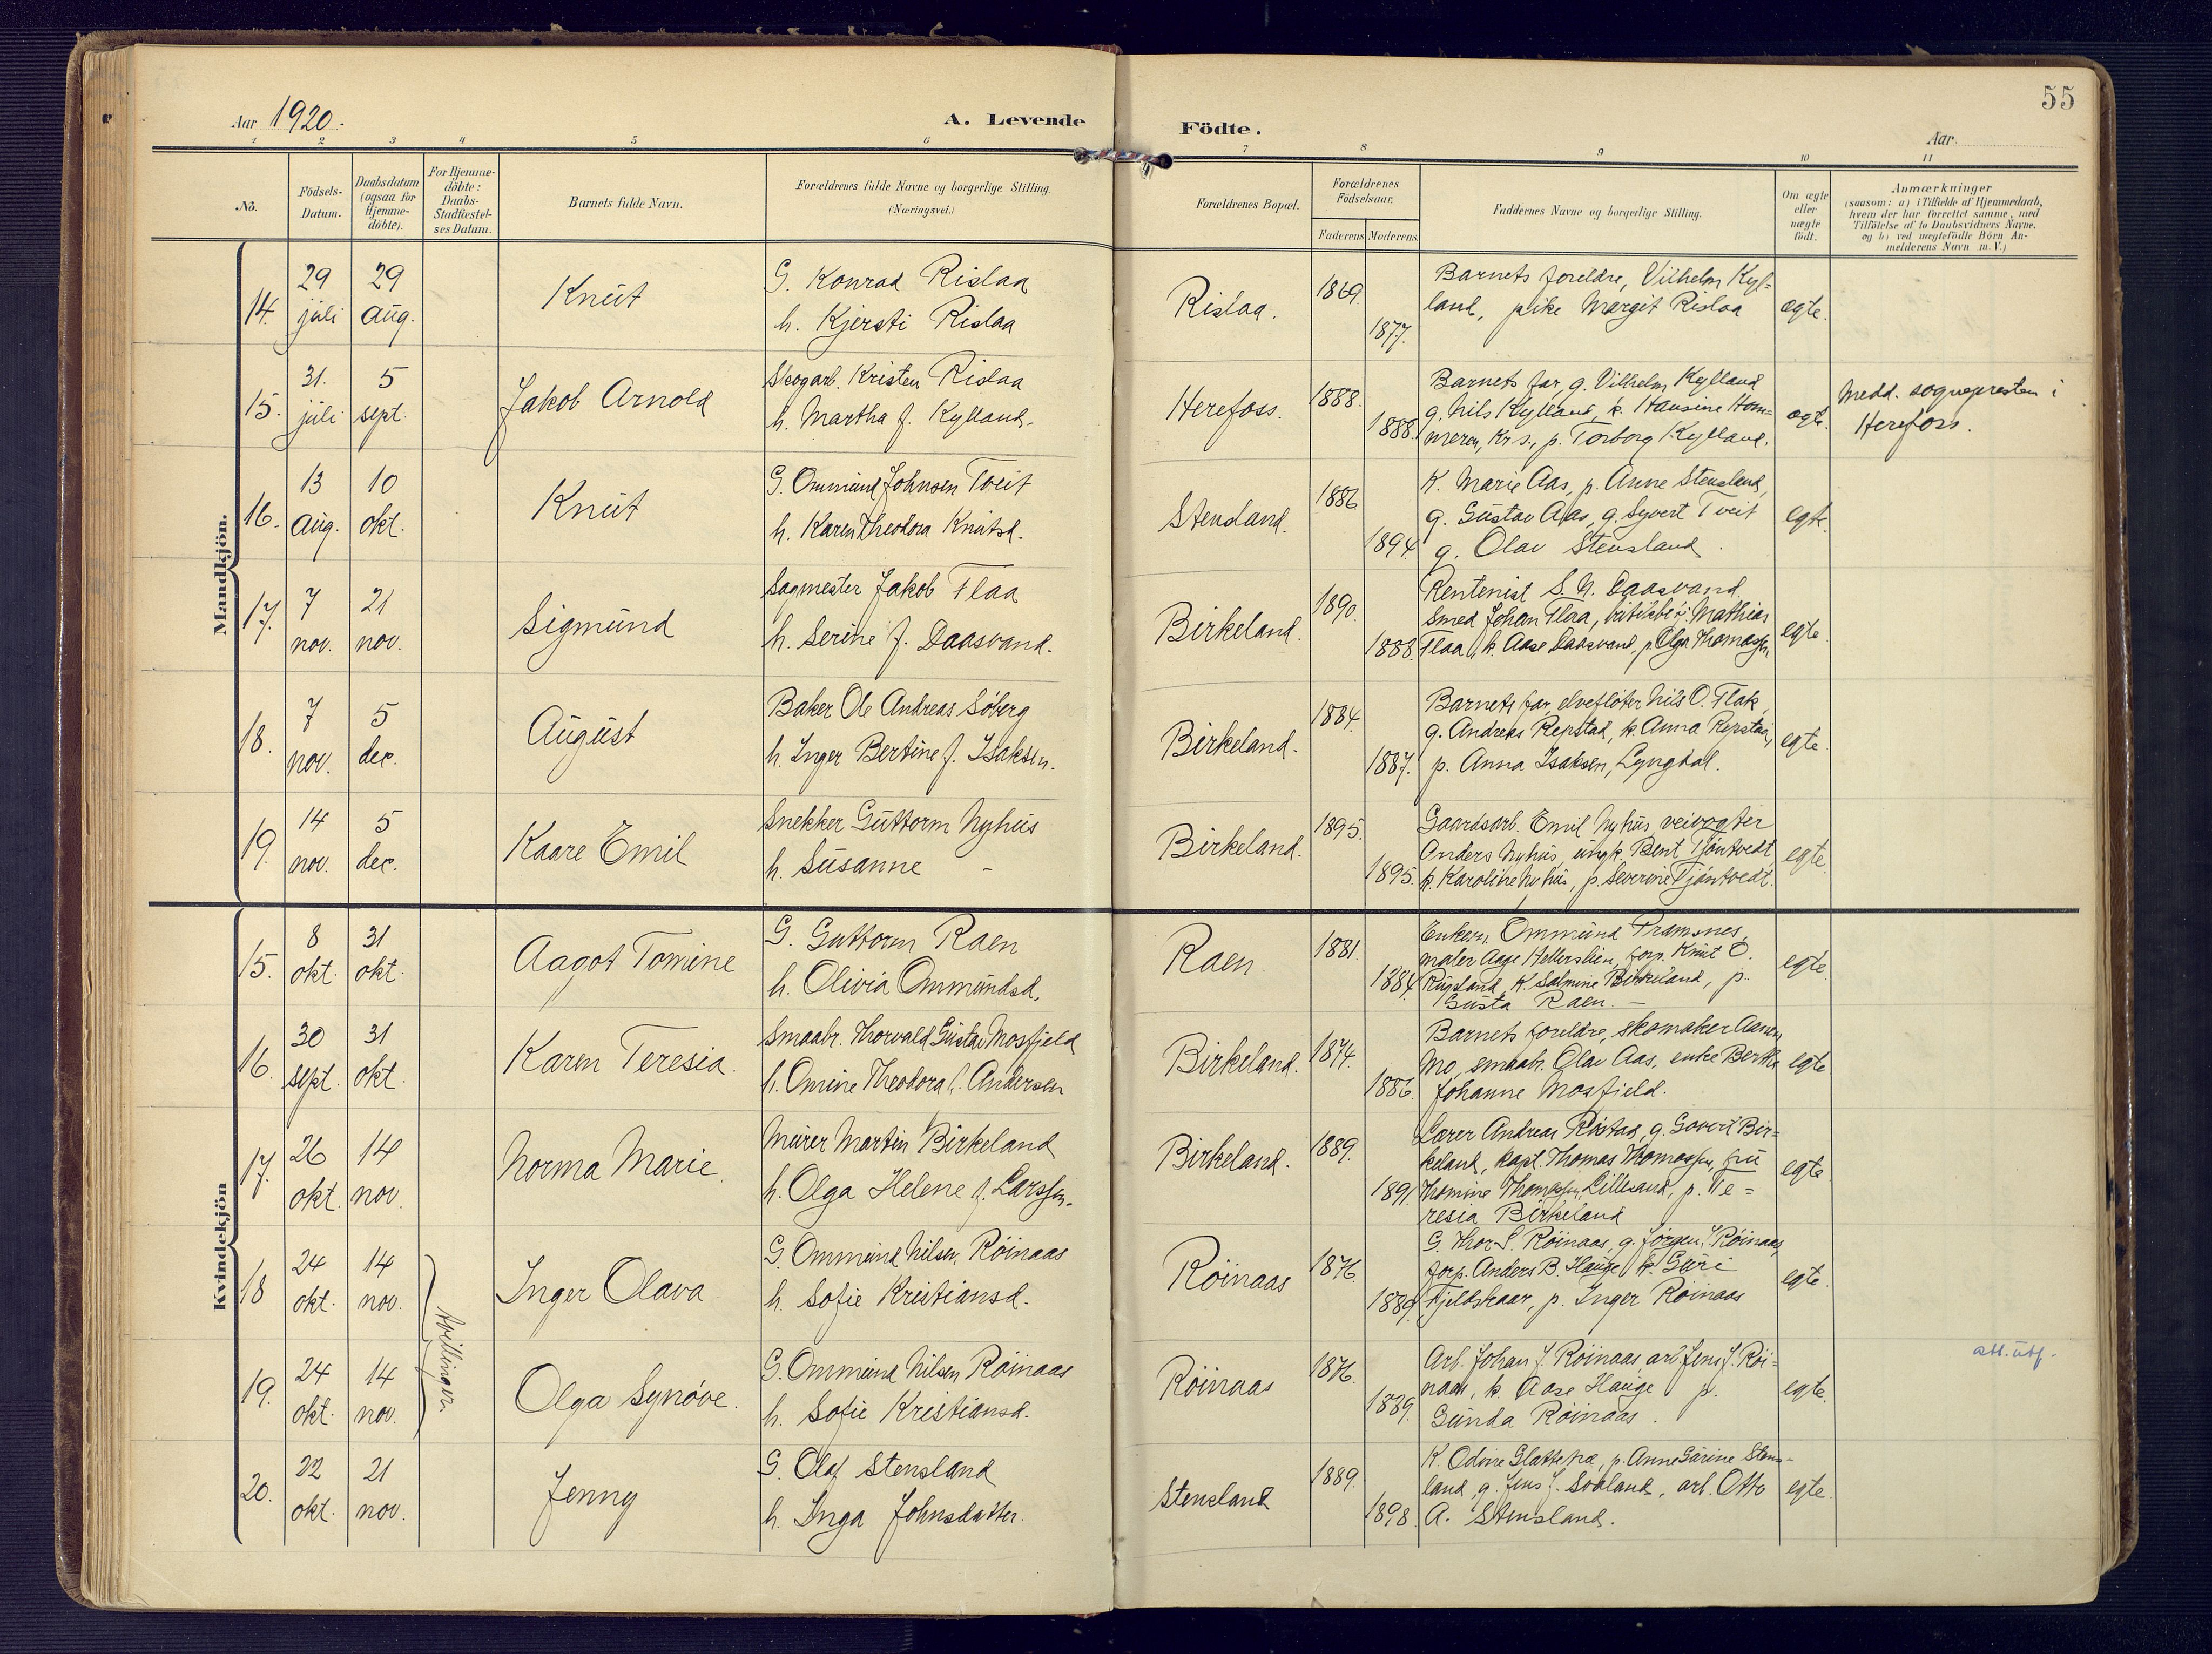 55
Aar 1920.
A. Levende Födte.
Aar
1 2 3 4 5 6 7 8 9 10 11
No.
Födsels-
Datum.
Daabsdatum
(ogsaa for
Hjemme-
döbte).
For Hjemme-
döbte:
Daabs-
Stadfæstel-
ses Datum.
Barnets fulde Navn.
Forældrenes fulde Navne og borgerlige Stilling
(Næringsvei.)
Forældrenes Bopæl.
Forældrenes
Födselsaar.
Faderens Moderens
Faddernes Navne og borgerlige Stilling.
Om ægte
eller
uægte
födt.
Anmærkninger
(saasom: a) i Tilfælde af Hjemmedaab,
hvem der har forrettet samme, med
Tilföielse af to Daabsvidners Navne,
og b) ved uægtefödte Börn An-
melderens Navn m. V.)
Mandkjön.
14.
29
juli
29
aug.
Knut
G. Konrad Rislaa
h. Kjersti Rislaa
Rislaa.
1869.
1877.
Barnets foreldre, Vilhelm Kyl=
land, pike Margit Rislaa
ægte.
15.
31.
juli
5
sept.
Jakob Arnold
Skogarb. Kristen Rislaa
h. Martha f. Kylland.
Herefoss.
1888.
1888.
Barnets far, g. Vilhelm Kylland
g. Nils Kylland, k. Hansine Hom=
meren, Kr.s., p. Torborg Kylland.
ægte.
Medd. sognepresten i
Herefoss.
16.
13
aug.
10
okt.
Knut
G. Ommund Johnsen Tveit
h. Karen Theodora Knutsd.
Stensland.
1886
1894
K. Marie Aas, p. Anne Stensland,
g. Gustav Aas, g. Syvert Tveit
g. Olav Stensland.
egte.
17.
7
nov.
21
nov.
Sigmund
Sagmester Jakob Flaa
h. Serine f. Daasvand.
Birkeland.
1890.
1888.
Rentenist S. N. Daasvand
Smed Johan Flaa, Mathias
Flaa, k. Aase Daasvand, p. Olga Thomassen
egte.
18.
7
nov.
5
dec.
August
Baker Ole Andreas Söberg
h. Inger Bertine f. Isaksen.
Birkeland.
1884.
1887.
Barnets far, elvefløter Nils O. Flak,
g. Andreas Repstad, k. Anna Repstad,
p. Anna Isaksen, Lyngdal.
egte.
19.
14
nov.
5
dec.
Kaare Emil
Snekker Guttorm Nyhus
h. Susanne -
Birkeland.
1895.
1895.
Gaardsarb. Emil Nyhus veivogter
Anders Nyhus, ungk. Bent Tjöntvedt
k. Karoline Nyhus, p. Severine Tjöntvedt.
egte.
Kvindekjön
15.
8
okt.
31
okt.
Aagot Tomine
G. Guttorm Raen
h. Olivia Ommundsd.
Raen.
1881.
1884.
Enkem. Ommund Tramsnes,
maler Aage Hellerslien, forp. Knut O.
Rugsland, K. Salmine Birkeland, p.
Gusta Raen. -
egte.
16.
30
sept.
31
okt.
Karen Teresia.
Smaabr. Thorvald Gustav Mosfjeld
h. Omine Theodora f. Andersen
Birkeland.
1874.
1886.
Barnets foreldre, skomaker Aanen
Mo, smaabr. Olav Aas, enke Berthe
Johanne Mosfjeld.
egte
17.
26
okt.
14
nov.
Norma Marie.
Murer Martin Birkeland
h. Olga Helene f. Larssen.
Birkeland.
1889.
1891.
Lærer Andreas g. Govert Bir=
keland, kapt. Thomas Thomassen, fru
Thomine Thomassen, Lillesand, p. Te=
resia Birkeland
egte.
18
24
okt.
14
nov.
tvillinger.
Inger Olava
G. Ommund Nilsen Röinaas
h. Sofie Kristiansd.
Röinaas
1876.
1889.
G. Thor S. Röinaas, g. Jörgen J. Röinaas,
forp. Anders B. Hauge, k. Guri
Fjeldskaar, p. Inger Röinaas
egte.
19.
24
okt.
14
nov.
Olga Synöve.
G. Ommund Nilsen Röinaas
h. Sofie Kristiansd.
Röinaas
1876.
1889.
Arb. Johan J. Röinaas, arb. Jens J. Röi=
naas, k. Aase Hauge, p.
Gunda Röinaas.
egte.
att. utf.
20.
22
okt.
21
nov.
Jenny
G. Olaf Stensland
h. Inga Johnsdatter.
Stensland
1889.
1898.
K. Odine Glattetræ, p. Anne Gurine Stens=
land, g. Jens J. Sooland, arb. Otto
A. Stensland.
egte.